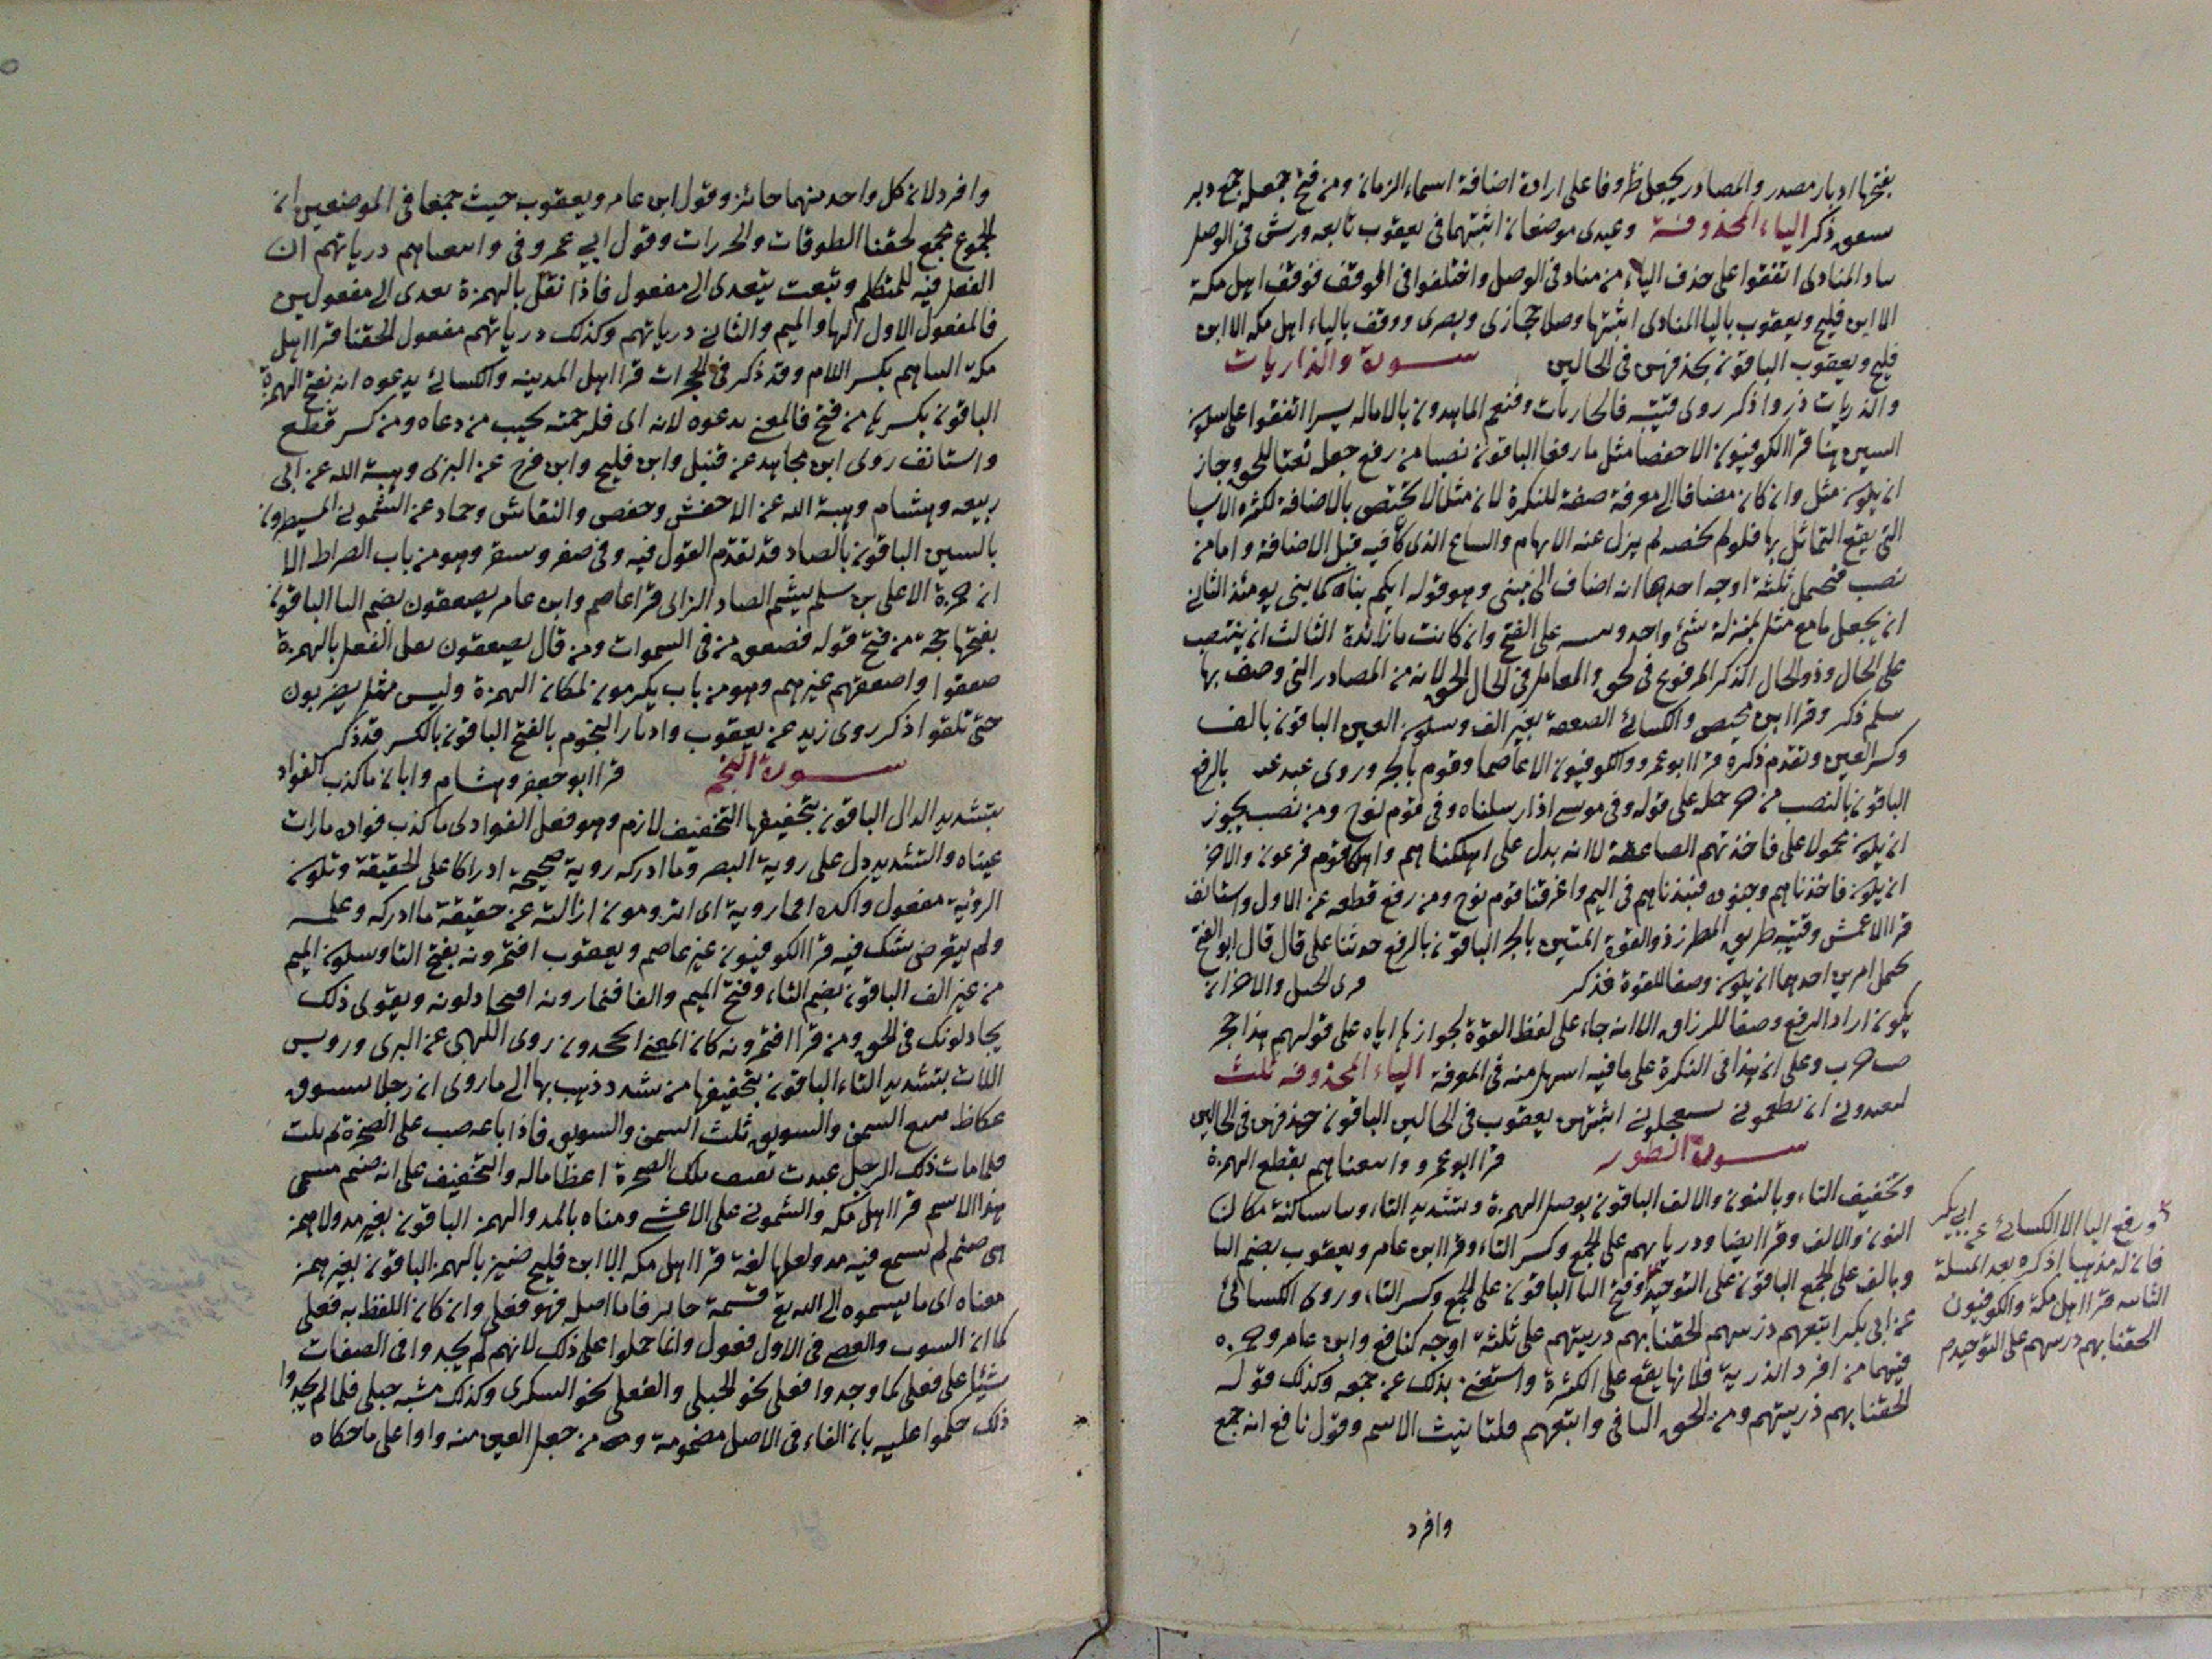 بفتحها ادبار مصدر والمصادر يجعل ظروفا على ارادة اضافة اسماء الزمان ومن فتح جعله جمع دبر
ذكر الياء المحذوفة وعيدى موضعان اثبتهما فى يعقوب تابعه ورش فى الوصل
المنادى اتفقوا على حذف الياء من مناد فى الوصل واختلفوا فى الوقف فوقف اهل مكة
الا ابن فليح ويعقوب باليا المنادى اثبتها وصلا حجازى وبصرى ووقف بالياء اهل مكه الا ابن
فليح ويعقوب الباقون بحذفهن فى الحالين سورة والذاريات
والذريات ذروا ذكر روى قتيبه فالجاريات وفنعم الماهدون بالاماله يسرا اتفقوا على سكون
السين هنا قرا الكوفيون الا حفصا مثل ما رفعا الباقون نصبا من رفع جعله نعتا للحق وجاز
ان يكون مثل وان كان مضافا الى معرفة صفة للنكرة لان مثلا لا يختص بالاضافة لكثره الاسيا
التى يقع التماثل بها فلولم يخصه لم يزل عنه الابهام والساع الذى كان فيه قبل الاضافة واما من
نصب فيحمل ثلثة اوجه احدها انه اضاف الى مبنى وهو قوله انكم بناه كما بنى يومئذ الثانى
ان يجعل ما مع مثل بمنزلة شئ واحد على الفتح وان كانت ما زائدة الثالث ان ينتصب
على الحال وذو الحال الذكر المرفوع فى لحق والمعامل فى الحال الحق لانه من المصادر التى وصف بها
سلم ذكر وقرا ابن محيصن والكسائى الصعقة بغير الف وسكون العين الباقون بالف
وكسر العين وتقدم ذكره قرا ابو عمرو والكوفيون الا عاصما وقوم بالجر وروى بالرفع
الباقون بالنصب من جر حمله على قوله وفى موسى اذ ارسلناه وفى قوم نوح ومن نصب يجوز
ان يكون محمولا على فاخذتهم الصاعقة لانه بدل على اهلكناهم واهلك قوم فرعون والاخر
ان يكون فاخذناهم وجنوده فنبذناهم فى اليم واغرقنا قوم نوح ومن رفع قطعه عن الاول واستانف
قرا الاعمش وقتيبه طريق المطرز ذو القوة المتين بالجر الباقون بالرفع حدثنا على قال قال ابو الفتح
يحمل امرين احدهما ان يكون وصفا للقوة فذكر والاخر ان
يكون اراد الرفع وصفا للرزاق الا انه جاء على لفظ القوة لجوازها اياه على قولهم هذا حجر
خرب وعلى ان هذا فى النكرة على ما فيه اسهل منه فى المعرفة الياء المحذوفه ثلث
ليعبدونى ان يطعمونى يستعجلونى اثبتهن يعقوب فى الحالين الباقون حذفهن فى الحالين
سورة الطور قرا ابو عمرو واتبعناهم بقطع الهمزة
وتخفيف التاء وبالنون والالف الباقون بوصل الهمزة وبتشديد التاء وتا ساكنة مكان
النون والالف وقرا ايضا ودرياتهم على الجمع وكسر التاء وقرا ابن عامر ويعقوب بضم التا
وبالف على الجمع الباقون على التوحيد وفتح التا الباقون على الجمع وكسر التاء وروى الكسائى
عن ابى بكر اتبعهم ذريتهم الحقنا بهم ذريتهم على ثلثة اوجه كنافع وابن عامر وحمزه
فيهما من افرد الذرية فلانها يقع على الكثرة واستغنى بذلك عن جمعه وكذلك قوله
الحقنا بهم ذريتهم ومن الحق التا فى واتبعهم فلتانيث الاسم وقول نافع انه جمع
ورفع التا الا الكسائى عن ابى بكر
فان له مذهبا اذكره بعد المسلة
الثانيه قرا اهل مكة والكوفيون
الحقنا بهم ذريتهم على التوحيد
وافرد
وافرد لان كل واحد منهما جائز وقول ابن عامر ويعقوب حيث جمعا فى الموضعين ان
الجموع تجمع لحقنا الطرقات والجزرات وقول ابى عمرو فى واتبعناهم درياتهم ان
الفعل فيه للمتكلم وتبعت يتعدى الى مفعول فاذا نقل بالهمزة تعدى الى مفعولين
فالمفعول الاول الها والميم والثانى درياتهم وكذلك درياتهم مفعول الحقنا قرا اهل
مكة التناهم بكسر اللام وقد ذكر فى الحجرات قرا اهل المدينه والكسائى يدعوه انه بفتح الهمزة
الباقون بكسرها من فتح فالمعنى يدعوه لانه اى فلرحمته يجيب من دعاه ومن كسر قطع
واستانف روى ابن مجاهد عن قنبل وابن فليح وابن فرح عن البزى وهبة الله عن ابى
ربيعه وهشام وهبة الله عن الاخفش وحفص والنقاش وحماد عن الشمونى المسيطرون
بالسين الباقون بالصاد قد تقدم القول فيه وفى صفر وسقر وهو من باب الصراط الا
ان حمزة الا على بن سلم يشم الصاد الزاى قرا عاصم وابن عامر يصعقون بضم اليا الباقون
بفتحها حجة من فتح قوله فصعق من فى السموات ومن قال يصعقون نقل الفعل بالهمزة
صعقوا واصعقهم غيرهم وهو من باب يكرمون لمكان الهمزة وليس مثل يضربون
حتى تلقوا ذكر روى زيد عن يعقوب وادبار النجوم بالفتح الباقون بالكسر قد ذكر
سورة النجم قرا ابو جعفر وهشام وابان ما كذب الفواد
بتشديد الدال الباقون بتخفيفها التخفيف لازم وهو فعل الفواد اى ما كذب فواده ما رات
عيناه والتشديد دل على روية البصر وما ادركه روية صحيحة ادراكا على الحقيقة وتكون
الرؤية مفعول واكده افتمارونه اى اترومون ازالته عن حقيقة ما ادركه وعلمه
ولم يعرض شك فيه قرا الكوفيون غير عاصم ويعقوب افتمرونه بفتح التا وسكون الميم
من غير الف الباقون بضم التاء وفتح الميم والفا فتمارونه افتجادلونه ويقوى ذلك
يجادلونك فى الحق ومن قرا افتمرونه كان المعنى افتجحدونه روى اللهبى عن البزى ورويس
اللات بتشديد التاء الباقون بتخفيفها من شدد ذهب بها الى ما روى ان رجلا بسوق
عكاظ يبيع السمن والسويق ثلث السمن والسويق فاذا باعه صب على الصخرة ثم يلت
فلما مات ذلك الرجل عبدت ثقيف تلك الصخرة اعظاما له والتخفيف على انه صنم مسمى
هذا الاسم قرا اهل مكه والشمونى على الاعشى ومناه بالمد والهمز الباقون بغير مد ولا همز
هى صنم لم يسمع فيه مد ولعلها لغة قرا اهل مكه الا ابن فليح ضئيز بالهمز الباقون بغير همز
معناه اى ما يسموه الى الله تع قسمة جائر فاما اصله فهو فعلى وان كان اللفظ به فعلى
كما ان السوت والعصى فى الاول فعول وانما حملوا على ذلك لانهم لم يجدوا فى الصفات
شيئا على فعلى كما وجدوا فعلى نحو الحبلى والفعلى نحو السكرى وكذلك مشيه حبلى فلما لم يجدوا
ذلك حكموا عليه بان الفاء فى الاصل مضمومة ومن جعل العين منه واوا على ما حكاه